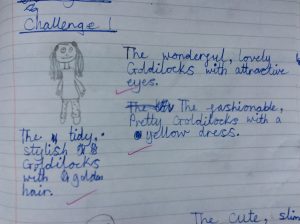 Challenge 1
The wonderful, lovely
Goldilocks with attractive
eyes.
The fashionable,
Pretty Goldilocks with a
yellow dress.
The tidy,
stylish
Goldilocks
with golden
hair.
The cute, slim